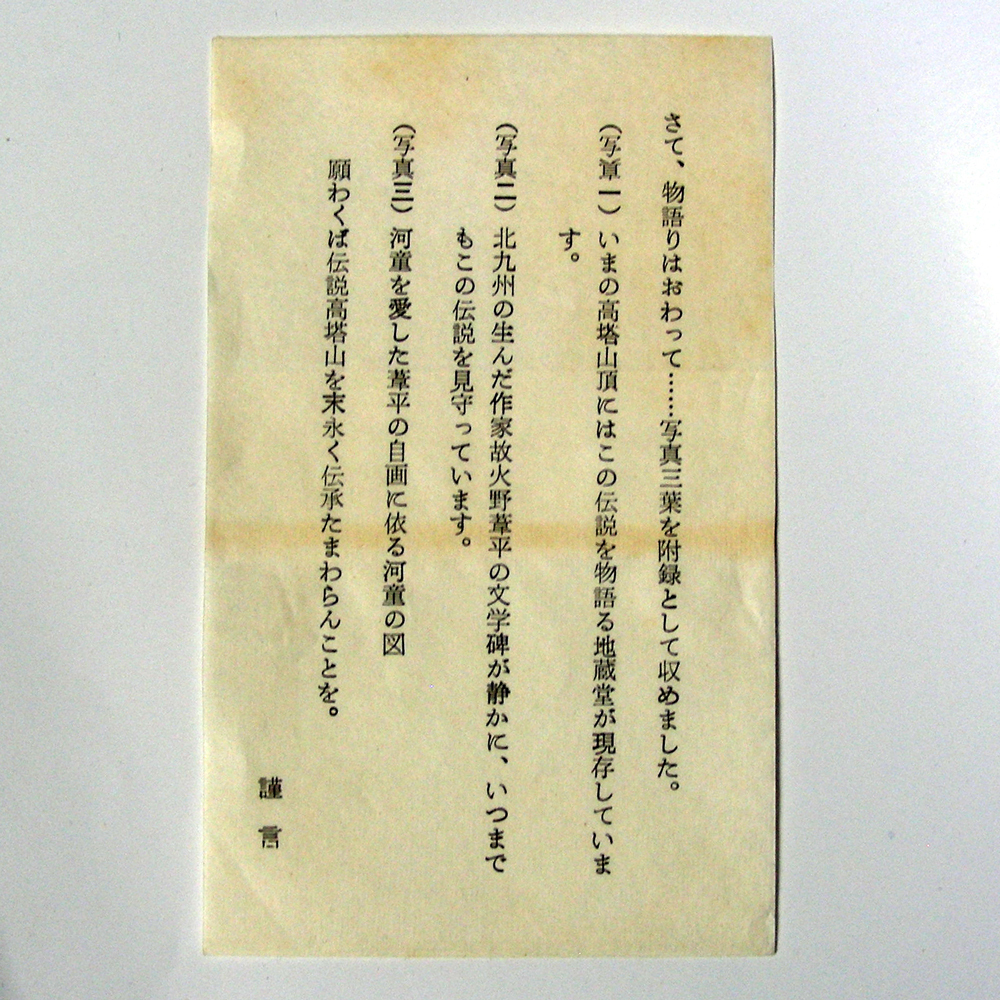 さて、物語りはおわって……写真三葉を附録として収めました。
(写章一)いまの高塔山頂にはこの伝説を物語る地蔵堂が現存していま
す。
(写真二)北九州の生んだ作家故火野葦平の文学碑が静かに、いつまで
もこの伝説を見守っています。
(写真三)河童を愛した葦平の自画に依る河童の図
願わくば伝説高塔山を末永く伝承たまわらんことを。
謹言